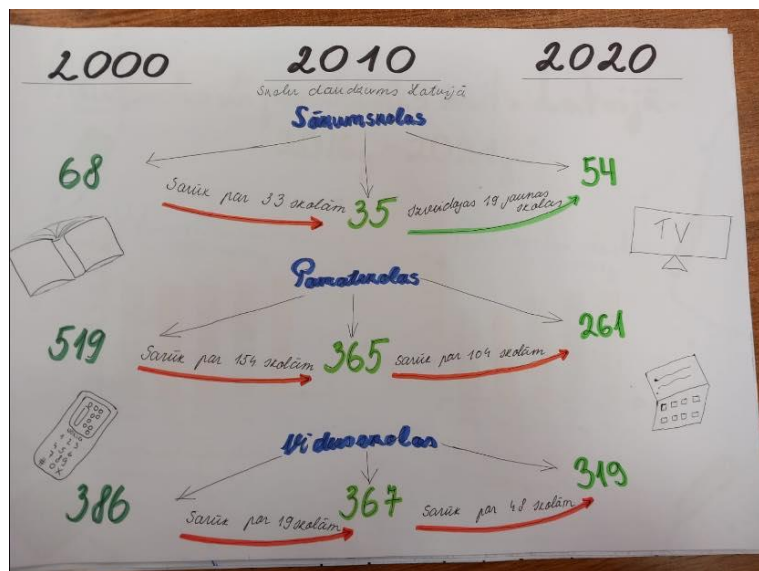 2000 2010 2020
Skolu daudzums Latvijā
Sākumskolas
68 Sarūk par 33 skolām 35 Izveidojas 19 jaunas skolas 54
TV
Pamatskolas
519 Sarūk par 154 skolām 365 sarūk par 104 skolām 261
Vidusskolas
386 Sarūk par 19 skolām 367 Sarūk par 48 skolām 319